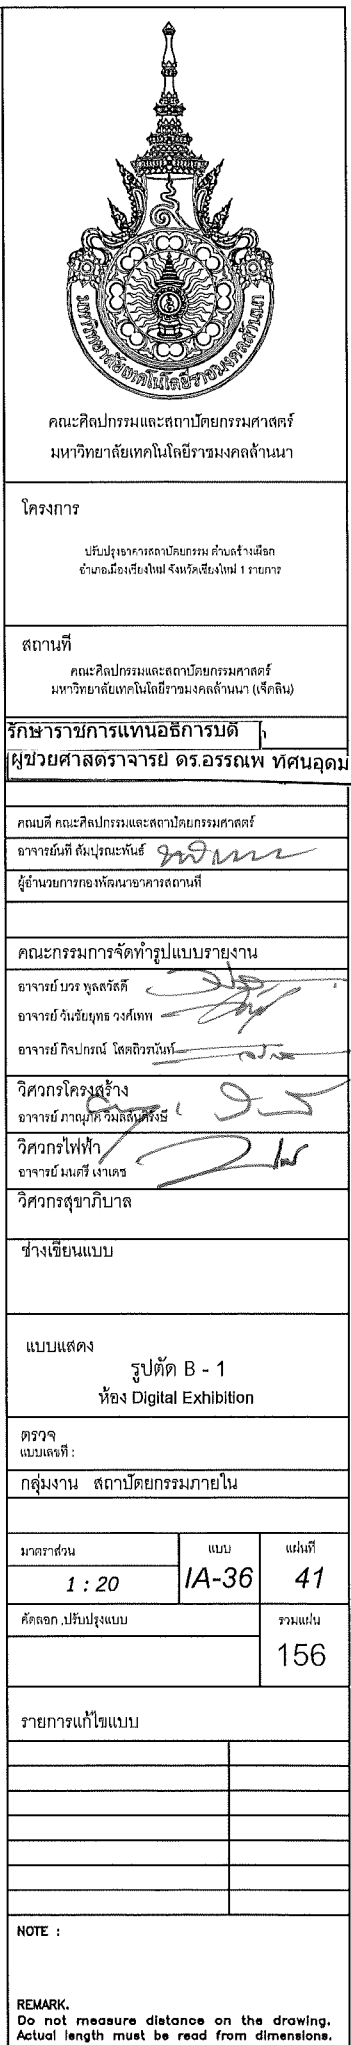 มหาวิทยาลัยเทคโนโลยีราชมงคลล้านนา
คณะศิลปกรรมและสถาปัตยกรรมศาสตร์
มหาวิทยาลัยเทคโนโลยีราชมงคลล้านนา
โครงการ
ปรับปรุงอาคารสถาปัตยกรรม ตำบลช้างเผือก
อำเภอเมืองเชียงใหม่ จังหวัดเชียงใหม่ 1 รายการ
สถานที่
คณะศิลปกรรมและสถาปัตยกรรมศาสตร์
มหาวิทยาลัยเทคโนโลยีราชมงคลล้านนา (เจ็ดลิน)
รักษาราชการแทนอธิการบดี
ผู้ช่วยศาสตราจารย์ ดร.อรรณพ ทัศนอุดม
คณบดี คณะศิลปกรรมและสถาปัตยกรรมศาสตร์
อาจารย์นที สัมปุรณะพันธ์
ผู้อำนวยการกองพัฒนาอาคารสถานที่
คณะกรรมการจัดทำรูปแบบรายงาน
อาจารย์ บวร พูลสวัสดิ์
อาจารย์ วันชัยยุทธ วงศ์เทพ
อาจารย์ กิจปกรณ์ โสตถิวรนันท์
วิศวกรโครงสร้าง
อาจารย์ ภาณุภัค
วิศวกรไฟฟ้า
อาจารย์ มนตรี เงาเดช
วิศวกรสุขาภิบาล
ช่างเขียนแบบ
แบบแสดง
รูปตัด B - 1
ห้อง Digital Exhibition
ตรวจ
แบบเลขที่ :
กลุ่มงาน สถาปัตยกรรมภายใน
มาตราส่วน แบบ แผ่นที่
1 : 20 IA-36 41
คัดลอก ,ปรับปรุงแบบ รวมแผ่น
156
รายการแก้ไขแบบ
NOTE :
REMARK.
Do not measure distance on the drawing.
Actual length must be read from dimensions.